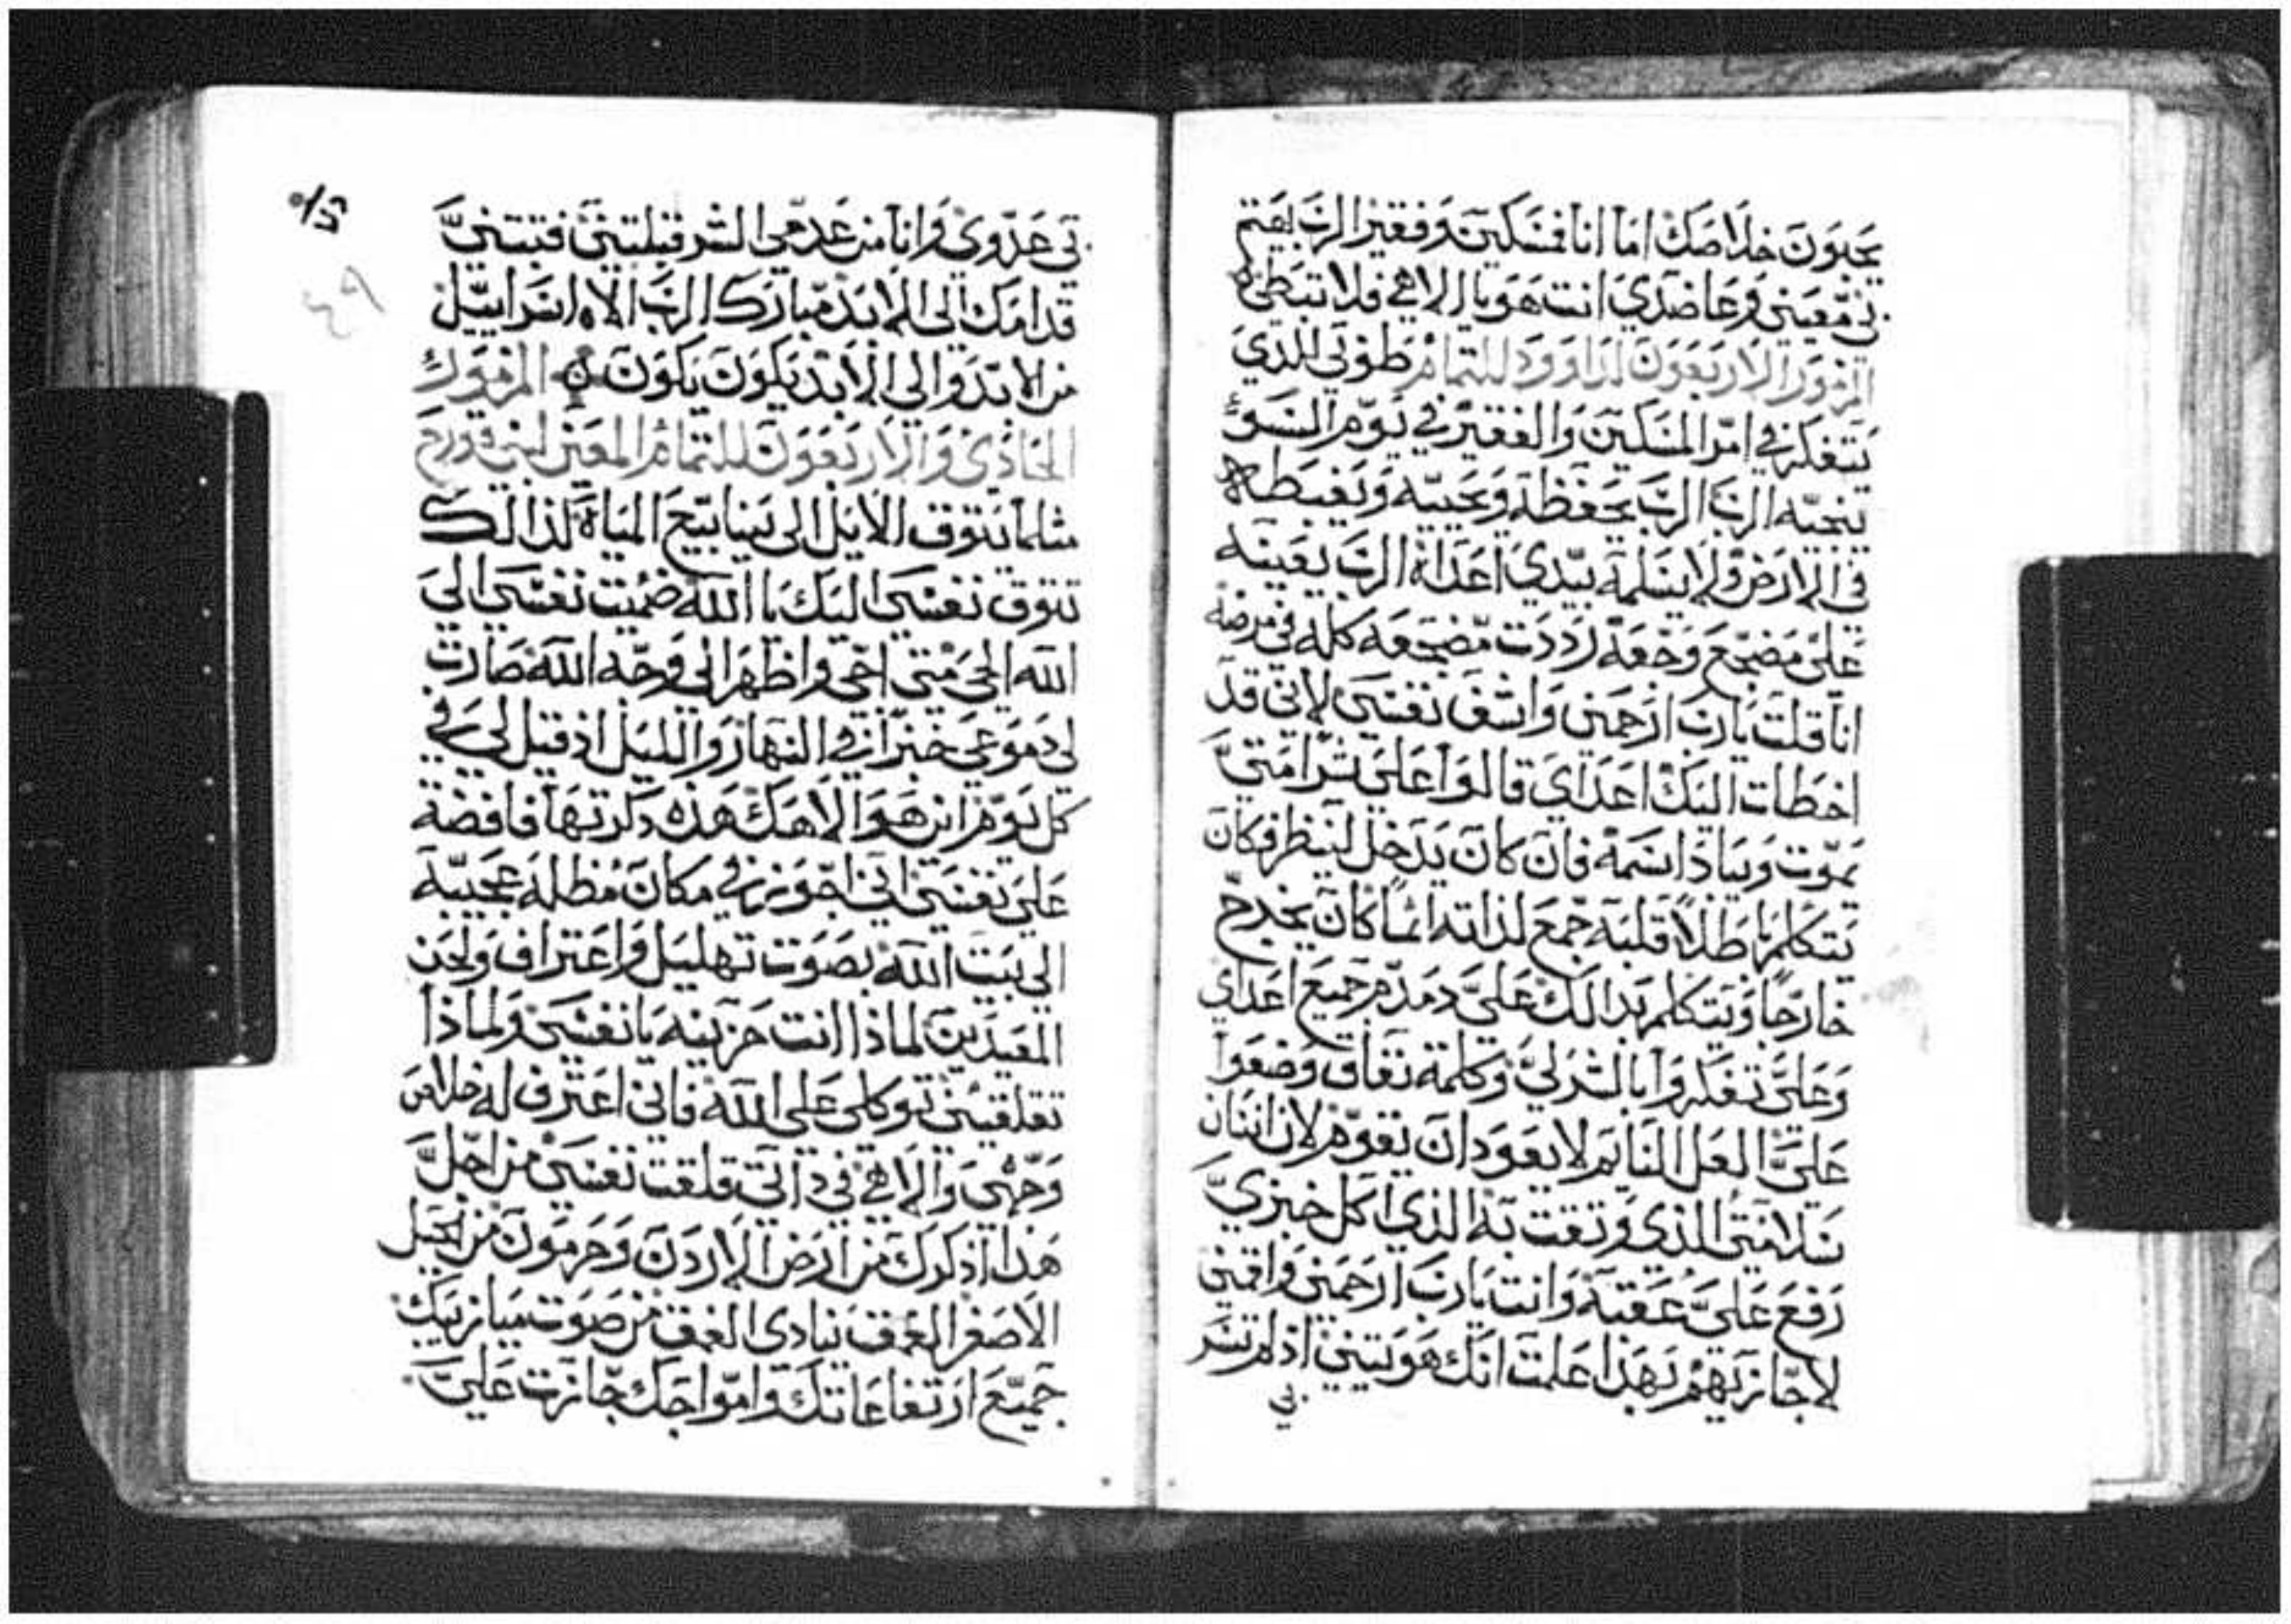 يحبون خلاصك اما انا فمسكين وفقير الرب يهتم
بي معيني وعاضدي انت هو يا الاهي فلا تبطي
المزمور الاربعون لداوود للتمام طوبي للذي
يتفكر في امر المسكين والفقير في يوم السوء
ينجيه الرب الرب يحفظه ويحييه ويغبطه
في الارض ولا يسلمه بيدي اعداه الرب يعينه
علي مضجع وجعه رددت مضجعه كله في مرضه
انا قلت يارب ارحمني واشف نفسي لاني قد
اخطات اليك اعداي قالوا علي شرا متي
يموت ويباد اسمه فان كان يدخل لينظر فكان
يتكلم باطلا قلبه جمع لذاته اثما كان يخرج
خارجا ويتكلم بذالك علي دمدم جميع اعداي
وعلي تفكروا بالشر لي وكلمة نفاق وضعوا
علي العل النايم لا يعود ان يقوم لان انسان
سلامتي الذي وثقت به الذي اكل خبزي
رفع علي عقبه وانت يارب ارحمني واقمني
لاجازيهم بهذا علمت انك هويتني اذ لم تسر
بي
بي عدوي وانا من عدمي الشر قبلتني فثبتني
قدامك الي الابد مبارك الرب الاه اسراييل
من الابد والي الابد يكون يكون المزمور
الحادي والاربعون للتمام المعني لبني قورح
مثلما يتوق الايل الي ينابيع المياه كذالك
تتوق نفسي اليك يا الله ضمئت نفسي الي
الله الحي متي اجي واظهر الي وجه الله صارت
لي دموعي خبزا في النهار والليل اذ قيل لي في
كل يوم اين هو الاهك هذه ذكرتها فافضة
علي نفسي اني اجوز في مكان مظله عجيبه
الي بيت الله بصوت تهليل واعتراف ولحن
المعيدين لماذا انت حزينه يا نفسي ولماذا
تقلقيني توكلي علي الله فاني اعترف له خلاص
وجهي والاهي في ذاتي قلقت نفسي من اجل
هذا اذكرك من ارض الاردن وحرمون من الجبل
الاصغر العمق ينادي العمق من صوت ميازيبك
جميع ارتفاعاتك وامواجك جازت علي